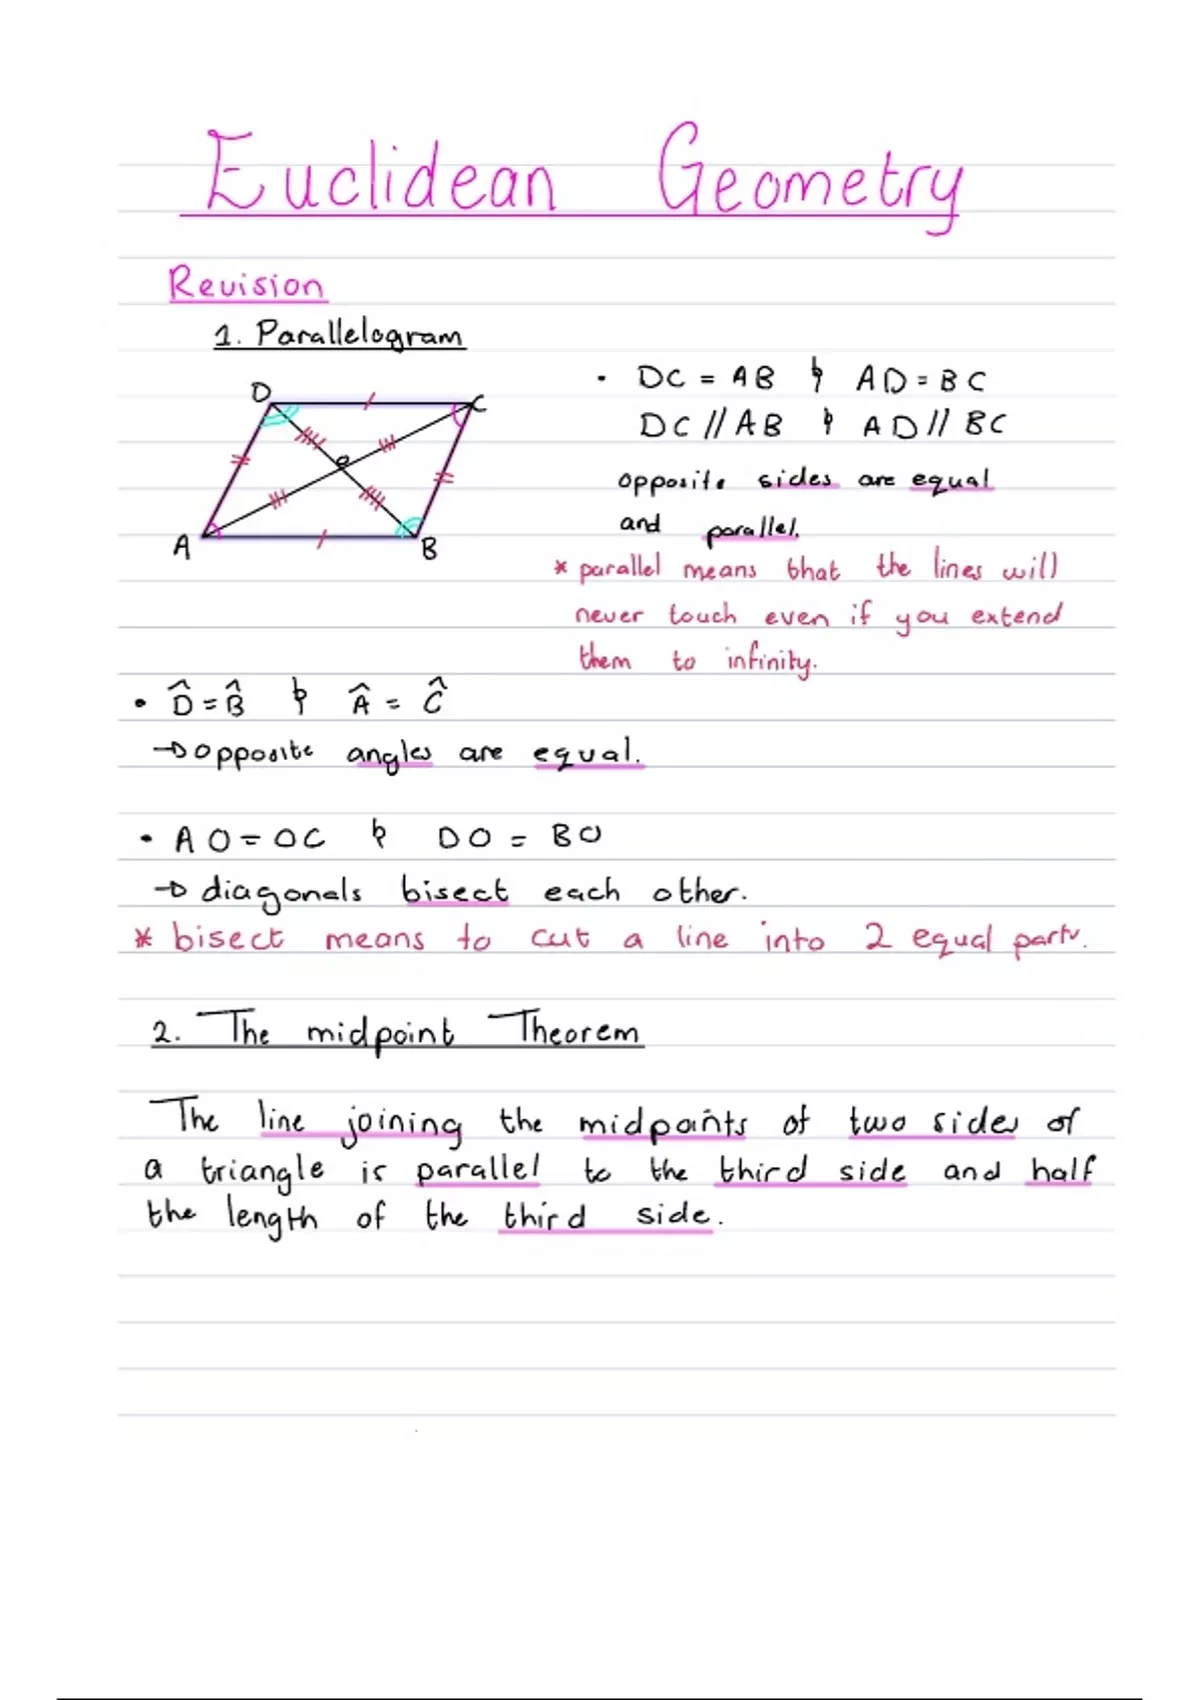 Euclidean Geometry
Revision
1. Parallelogram
D
C
O
A
B
• DC = AB & AD = BC
DC // AB & AD // BC
opposite sides are equal
and parallel.
* parallel means that the lines will
never touch even if you extend
them to infinity.
• D̂ = B̂ & Â = Ĉ
→ opposite angles are equal.
• AO = OC & DO = BO
→ diagonals bisect each other.
* bisect means to cut a line into 2 equal parts.
2. The midpoint Theorem
The line joining the midpoints of two sides of
a triangle is parallel to the third side and half
the length of the third side.